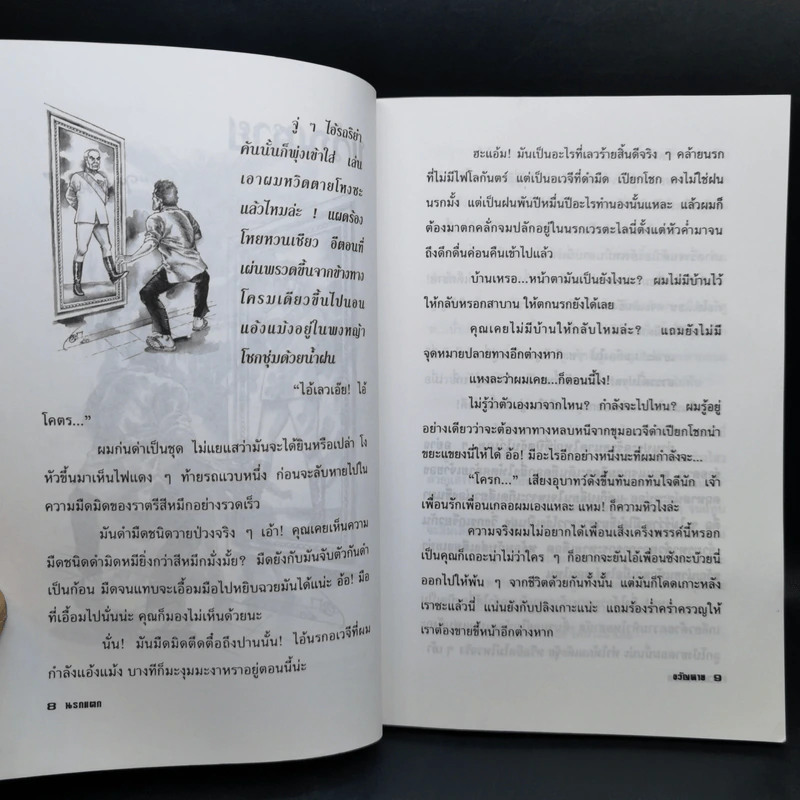 จู่ ๆ ไอ้รถริยำ
คันนั้นก็พุ่งเข้าใส่ เล่น
เอาผมหวิดตายโหงซะ
แล้วไหมล่ะ ! แผดร้อง
โหยหวนเชียว อีตอนที่
เผ่นพรวดขึ้นจากข้างทาง
โครมเดียวขึ้นไปนอน
แอ้งแม้งอยู่ในพงหญ้า
โชกชุ่มด้วยน้ำฝน
“ไอ้เลวเอ๊ย! ไอ้
โคตร...”
ผมก่นด่าเป็นชุด ไม่แยแสว่ามันจะได้ยินหรือเปล่า โง
หัวขึ้นมาเห็นไฟแดง ๆ ท้ายรถแวบหนึ่ง ก่อนจะลับหายไปใน
ความมืดมิดของราตรีสีหมึกอย่างรวดเร็ว
มันดำมืดชนิดวายป่วงจริง ๆ เอ้า! คุณเคยเห็นความ
มืดชนิดดำมิดหมียิ่งกว่าสีหมึกมั่งมั้ย? มืดยังกับมันจับตัวกันดำ
เป็นก้อน มืดจนแทบจะเอื้อมมือไปหยิบฉวยมันได้แน่ะ อ้อ! มือ
ที่เอื้อมไปนั่นน่ะ คุณก็มองไม่เห็นด้วยนะ
นั่น! มันมืดมิดตึดตื๋อถึงปานนั้น! ไอ้นรกอเวจีที่ผม
กำลังแอ้งแม้ง บางทีก็มะงุมมะงาหราอยู่ตอนนี้น่ะ
8 นรกแตก
ฮะแอ้ม! มันเป็นอะไรที่เลวร้ายสิ้นดีจริง ๆ คล้ายนรก
ที่ไม่มีไฟโลกันตร์ แต่เป็นอเวจีที่ดำมืด เปียกโชก คงไม่ใช่ฝน
นรกมั้ง แต่เป็นฝนพันปีหมื่นปีอะไรทำนองนั้นแหละ แล้วผมก็
ต้องมาตกคลั่กจมปลักอยู่ในนรกเวรตะไลนี่ตั้งแต่หัวค่ำมาจน
ถึงดึกดื่นค่อนคืนเข้าไปแล้ว
บ้านเหรอ...หน้าตามันเป็นยังไงนะ? ผมไม่มีบ้านไว้
ให้กลับหรอกสาบาน ให้ตกนรกยังได้เลย
คุณเคยไม่มีบ้านให้กลับไหมล่ะ? แถมยังไม่มี
จุดหมายปลายทางอีกต่างหาก
แหงละว่าผมเคย...ก็ตอนนี้ไง!
ไม่รู้ว่าตัวเองมาจากไหน? กำลังจะไปไหน? ผมรู้อยู่
อย่างเดียวว่าจะต้องหาทางหลบหนีจากขุมอเวจีดำเปียกโชกน่า
ขยะแขยงนี่ให้ได้ อ้อ! มีอะไรอีกอย่างหนึ่งนะที่ผมกำลังจะ...
“โครก...” เสียงอุบาทว์ดังขึ้นทันอกทันใจดีนัก เจ้า
เพื่อนรักเพื่อนเกลอผมเองแหละ แหม! ก็ความหิวไงล่ะ
ความจริงผมไม่อยากได้เพื่อนเส็งเคร็งพรรค์นี้หรอก
เป็นคุณก็เถอะน่า ไม่ว่าใคร ๆ ก็อยากจะยันไอ้เพื่อนซังกะบ๊วยนี่
ออกไปให้พ้น ๆ จากชีวิตด้วยกันทั้งนั้น แต่มันก็โดดเกาะหลัง
เราซะแล้วนี่ แน่นยังกับปลิงเกาะแน่ะ แถมร้องร่ำคร่ำครวญให้
เราต้องขายขี้หน้าอีกต่างหาก
ขวัญหาย 9